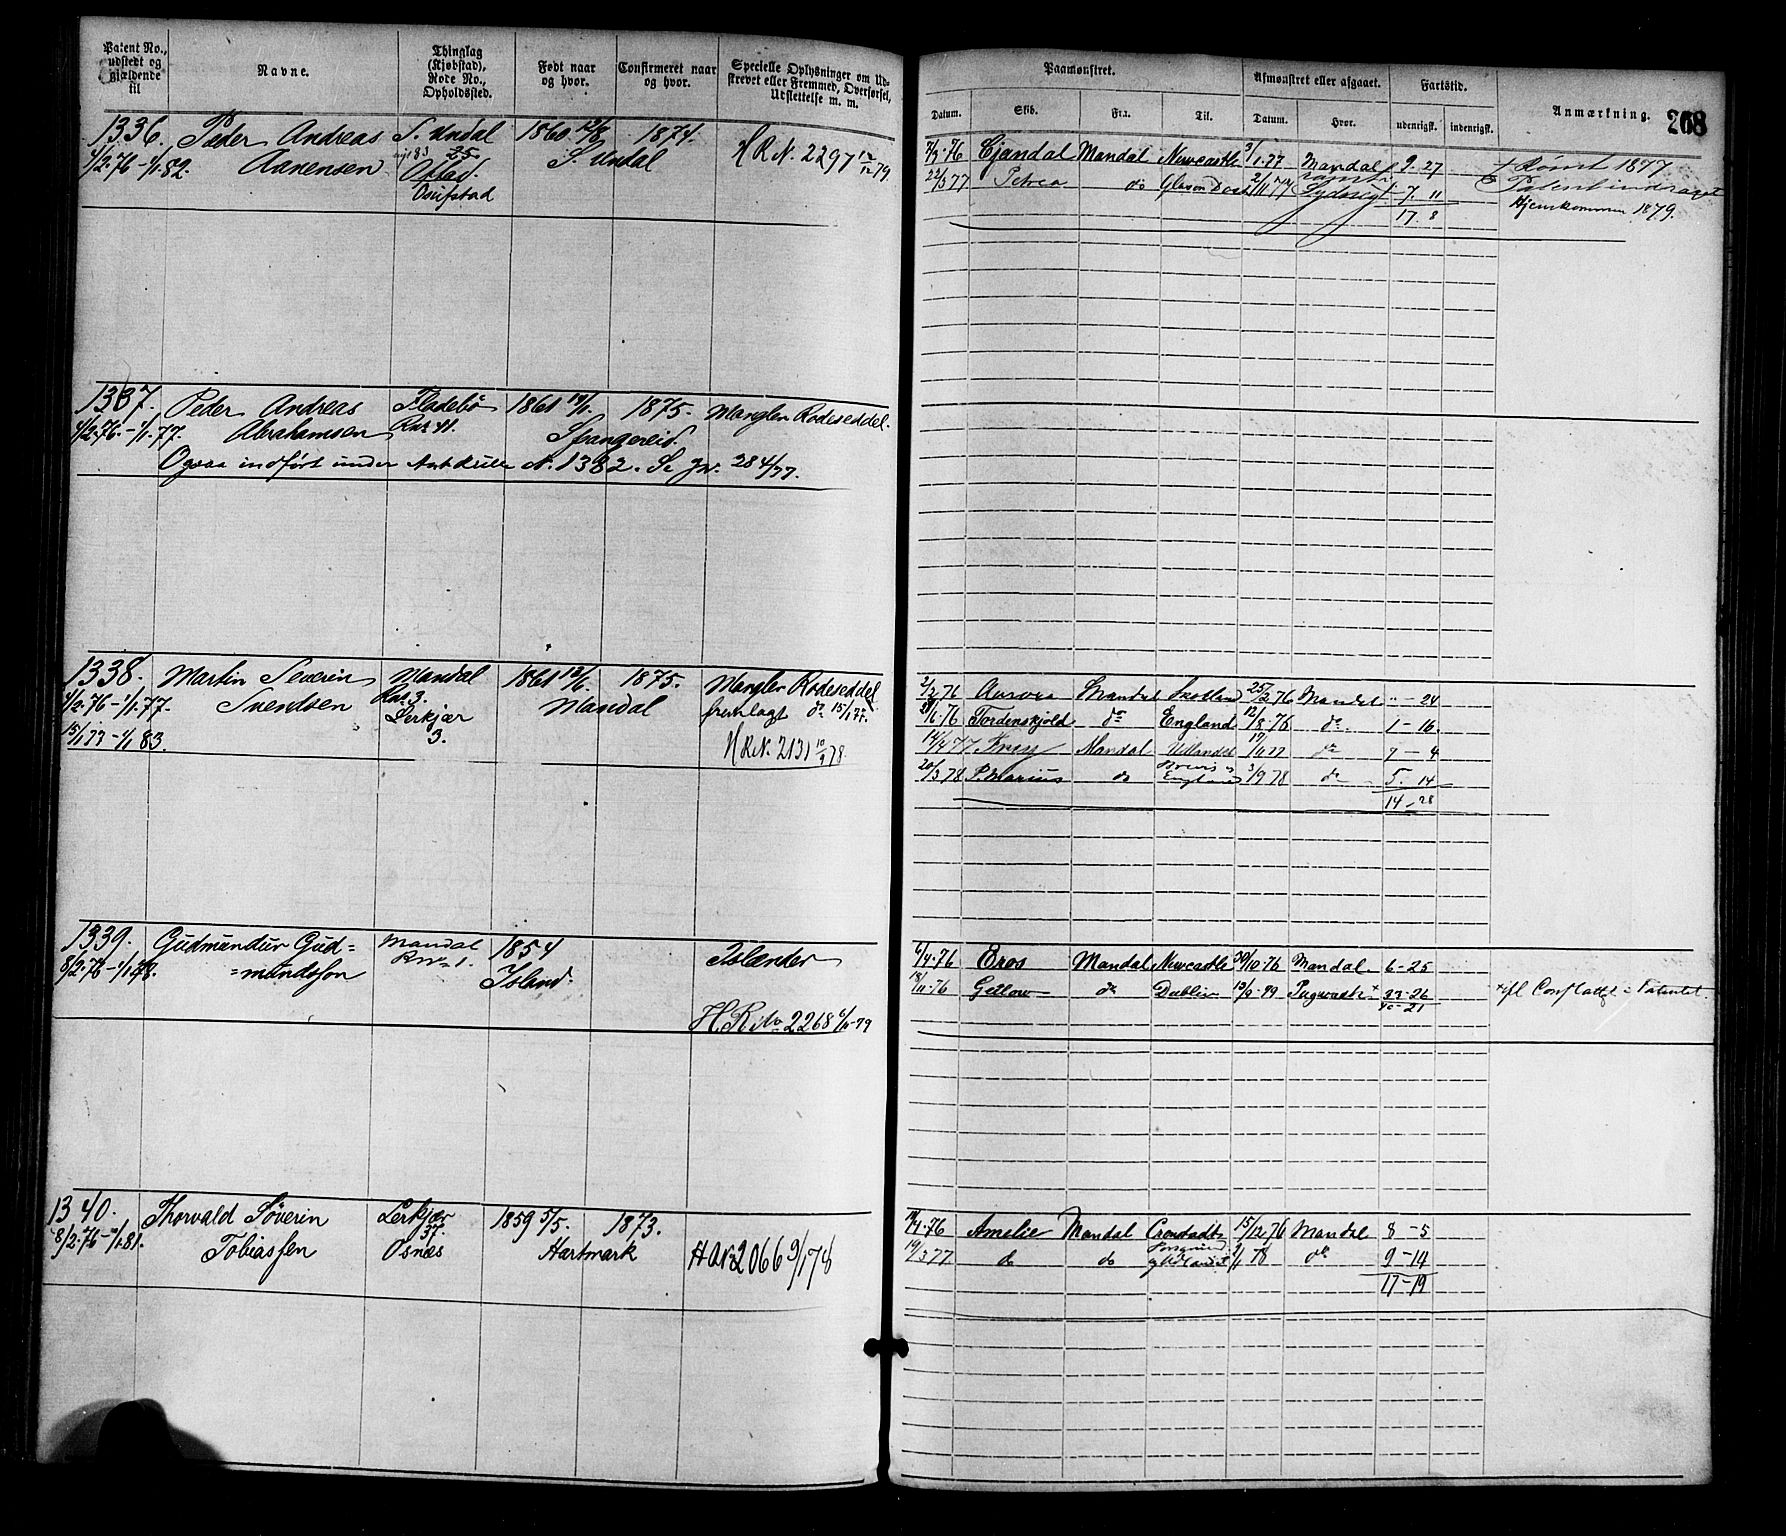 Patent No., udstedt og gjældende til
Navne.
Thinglag (Kjøbstad), Rode No., Opholdssted.
Født naar og hvor.
Confirmeret naar og hvor.
Specielle Oplysninger om Udskrevet eller Fremmed, Overførsel, Udslettelse m. m.
1336. Peder Andreas S. Undal 1860 12/8 1874.
4/2.76-1/1.82. Aanensen 25 S. Undal H R N. 2297 79
Osufstad
1337. Peder Andreas Fladebø 1861 1875. Mangler Rodeseddel.
4/2.76.-1/1.77. Abrahamsen Rnr 41. Spangereid.
Ogsaa indført under N. 1382. Se 28 4/77.
1338. Martin Severin Mandal 1861 12/6. 1875. Mangler Rodeseddel
4/2.76-1/1.77. Svendsen Rnr 3. Mandal fremlagt do 15/1 77.
Lerkjær
15/1 77-1/1 83. 3. H R N. 2131 10/9 78
1339. Gudmundur Gud= Mandal 1854 Islænder
8/2.76-1/1.78. =mundsson Rno 1. Island.
H. R. No 2268 6/11-79
1340. Thorvald Søverin Lerkjær 1859 5/5. 1873.
8/2.76-1/1.81. Tobiassen 37. Osnæs Hartmark H a N 2066 3/1 78
Paamønstret.
Afmønstret eller afgaaet.
Fartstid.
Anmærkning.
268
Datum. Skib. Fra. Til. Datum. Hvor. udenrigsk. indenrigsk.
76 Ejandal Mandal Newcastle 3/1.77 Mandal 9. 27 + Rømt 1877
22/3 77 Petrea do 2/11 77 7. 11 Patent inddraget
17. 8 Hjemkommen 1879.
2/2 76 Aurora Mandal Skotland 25/2 76 Mandal " - 24
6.76 Tordenskjold do England 12/8 76 do. 1 - 16.
14/4 77 Mandal 77 do 7 - 4
20/3 78 P. Marius do England 3/9 78 do 5. 14
14 - 28
6/4.76 Eros Mandal Newcastle 30/10.76 Mandal. 6 - 25
18/11.76 do Dublin 79 33 - 26
40 - 21
76 Amelie Mandal Cronstadt 15/12 76 Mandal 8 - 5
19/3 77 do do 2/1 78 do 9 - 14
17 - 19